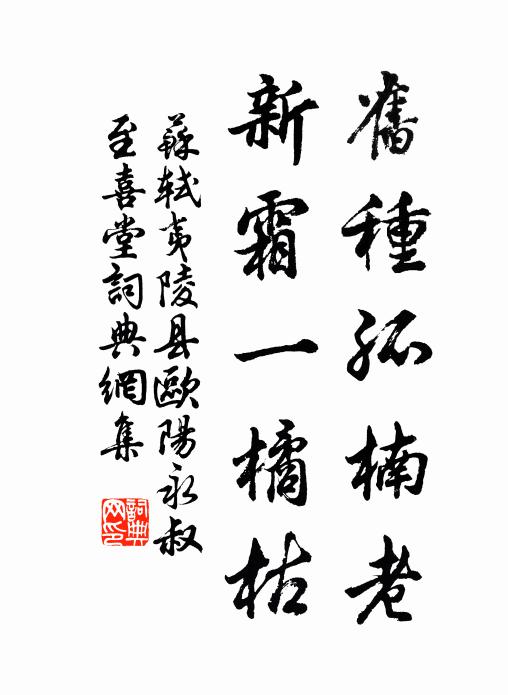 舊種孤楠老
新霜一橘枯
蘇軾夷陵县歐陽永叔
至喜堂詞典網集
詞典
网印